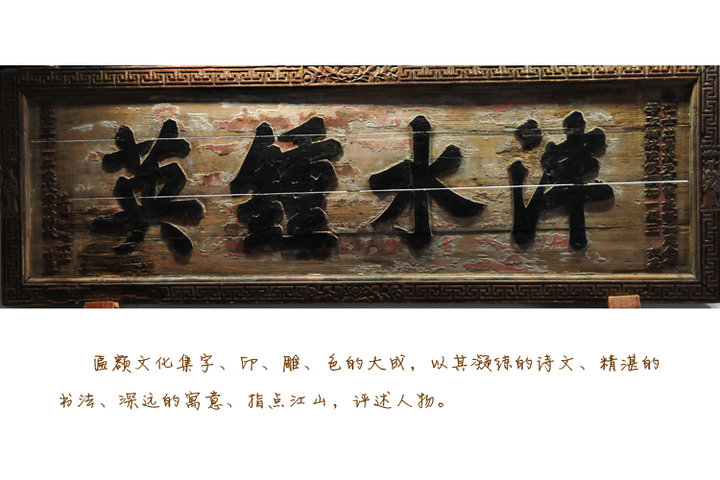 泮水鍾英
匾额文化集字、印、雕、色的大成，以其凝练的诗文、精湛的
书法、深远的寓意、指点江山，评述人物。